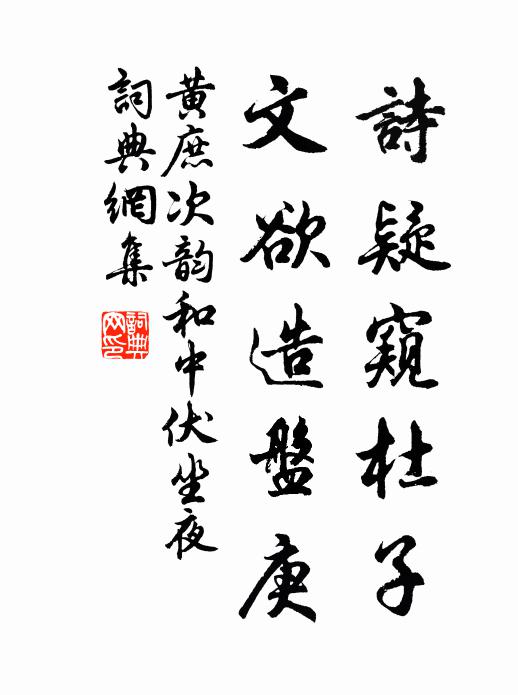 詩疑窺杜子
文欲造盤庚
黃庶次韵和中伏坐夜
詞典網集
詞典
网印